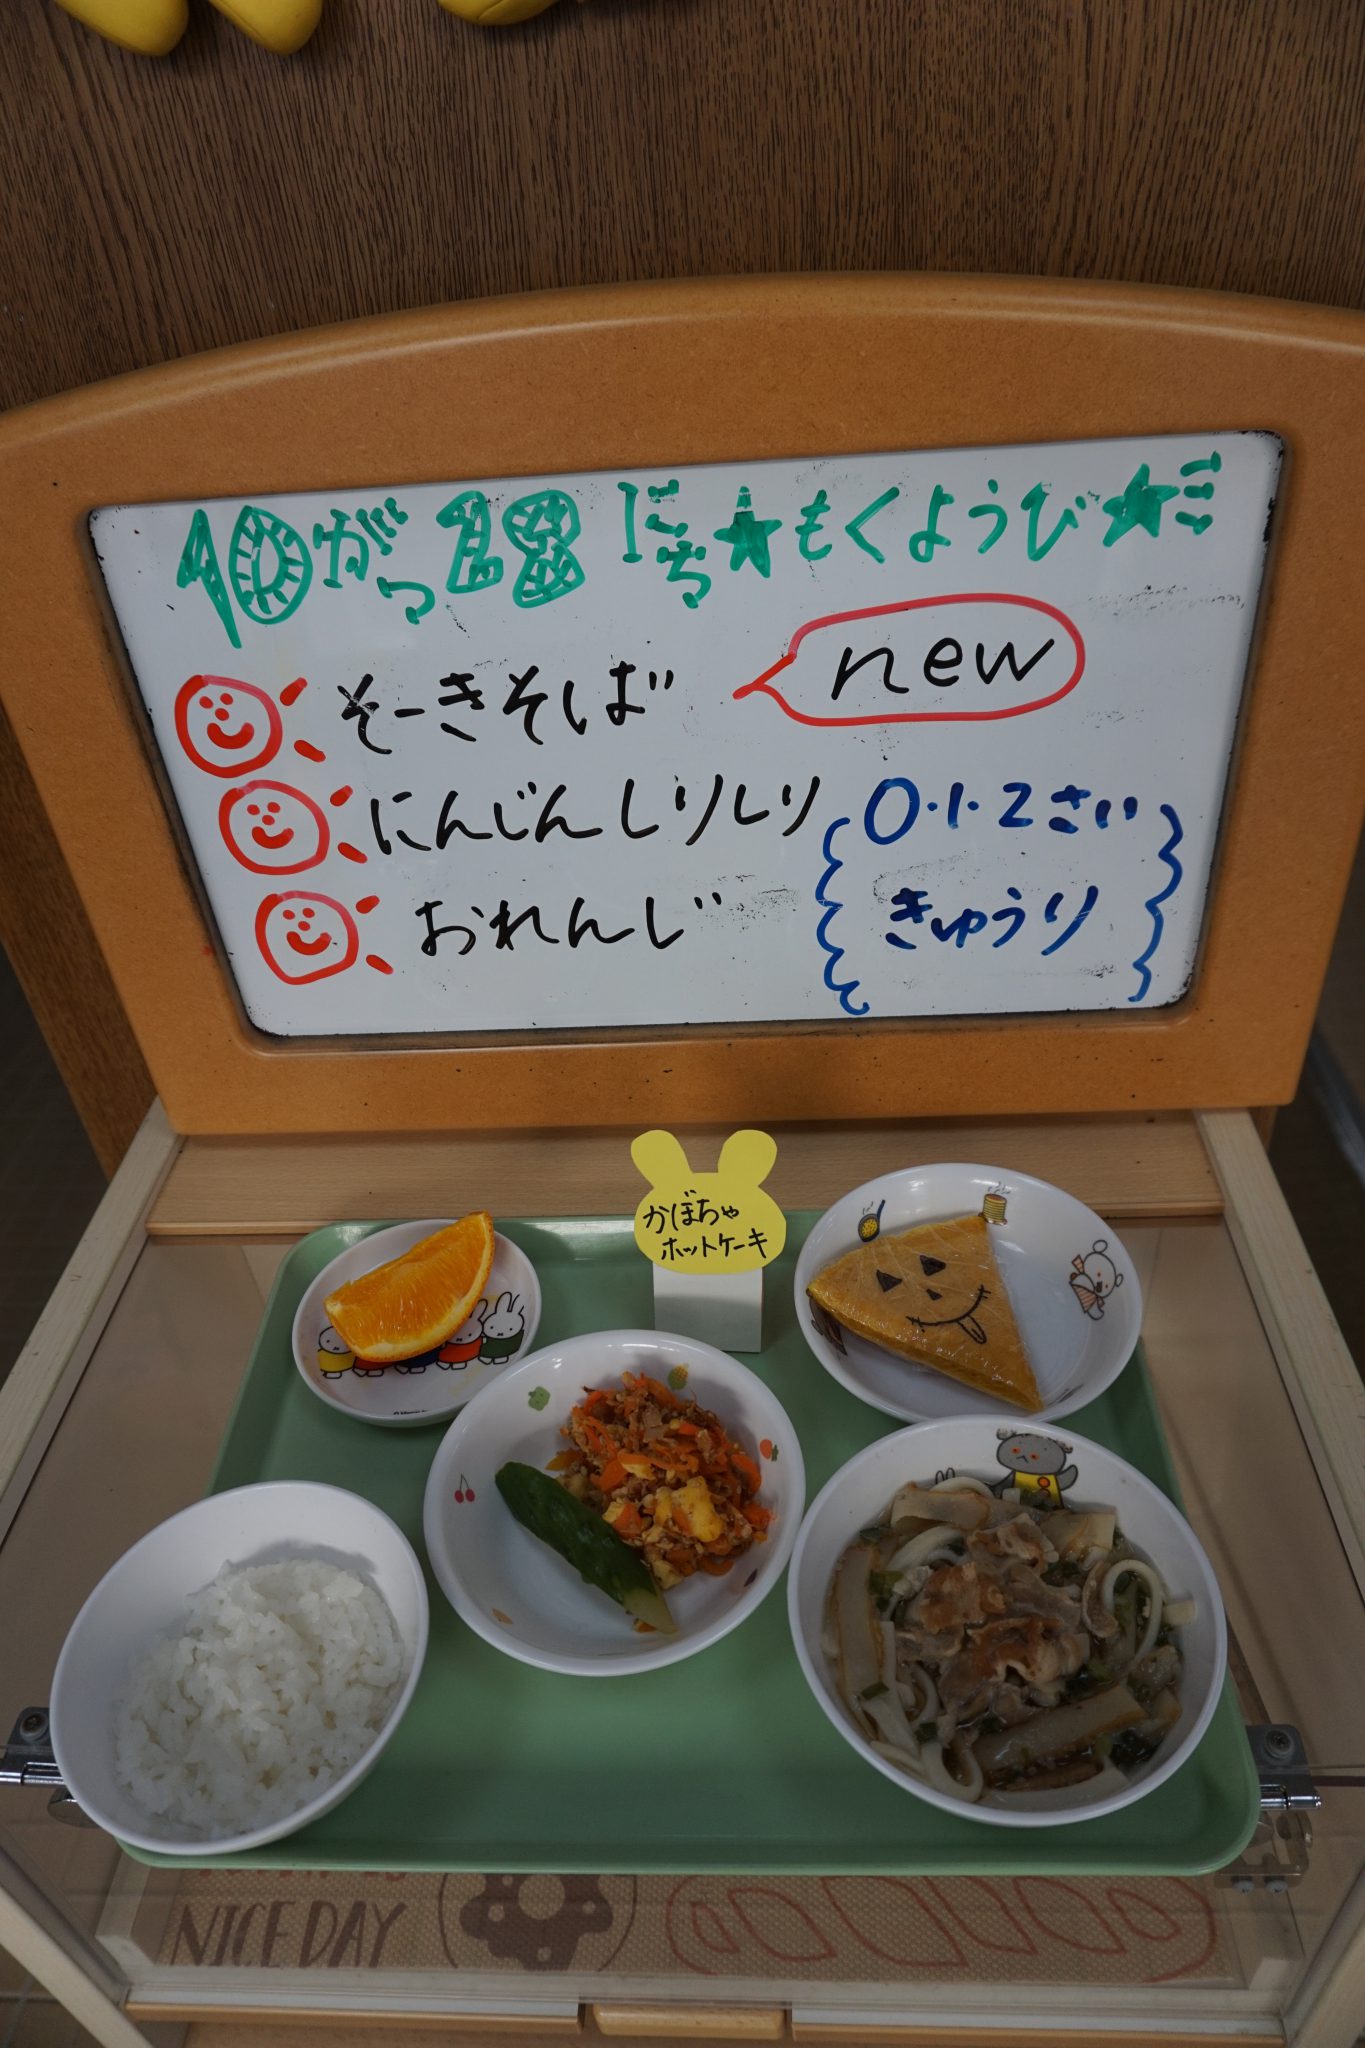 10がつ18にち★もくようび★
そーきそば
new
にんじんしりしり
0・1・2さい
おれんじ
きゅうり
かぼちゃ
ホットケーキ
NICE DAY